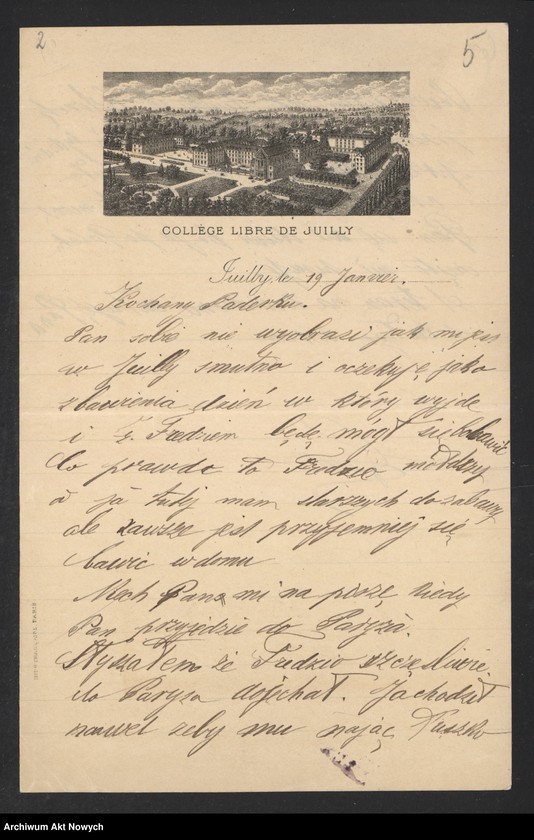 2
5
COLLÈGE LIBRE DE JUILLY
Juilly, le 19 Janvier.
Kochany Paderku.
Pan sobie nie wyobrazi jak mi jest
w Juilly smutno i oczekuję jako
zbawienia dzień w który wyjdę
i z Fudziem będę mógł się bawić
Co prawda to Fudzio młodszy
a ja tutaj mam starszych do zabawy
ale zawsze jest przyjemniej się
bawić w domu
Niech Pan mi napisze kiedy
Pan przyjedzie do Paryża.
Słyszałem że Fudzio szczesliwie
do Paryża dojechał. Ja chodził
nawet żeby mu nająć
Archiwum Akt Nowych